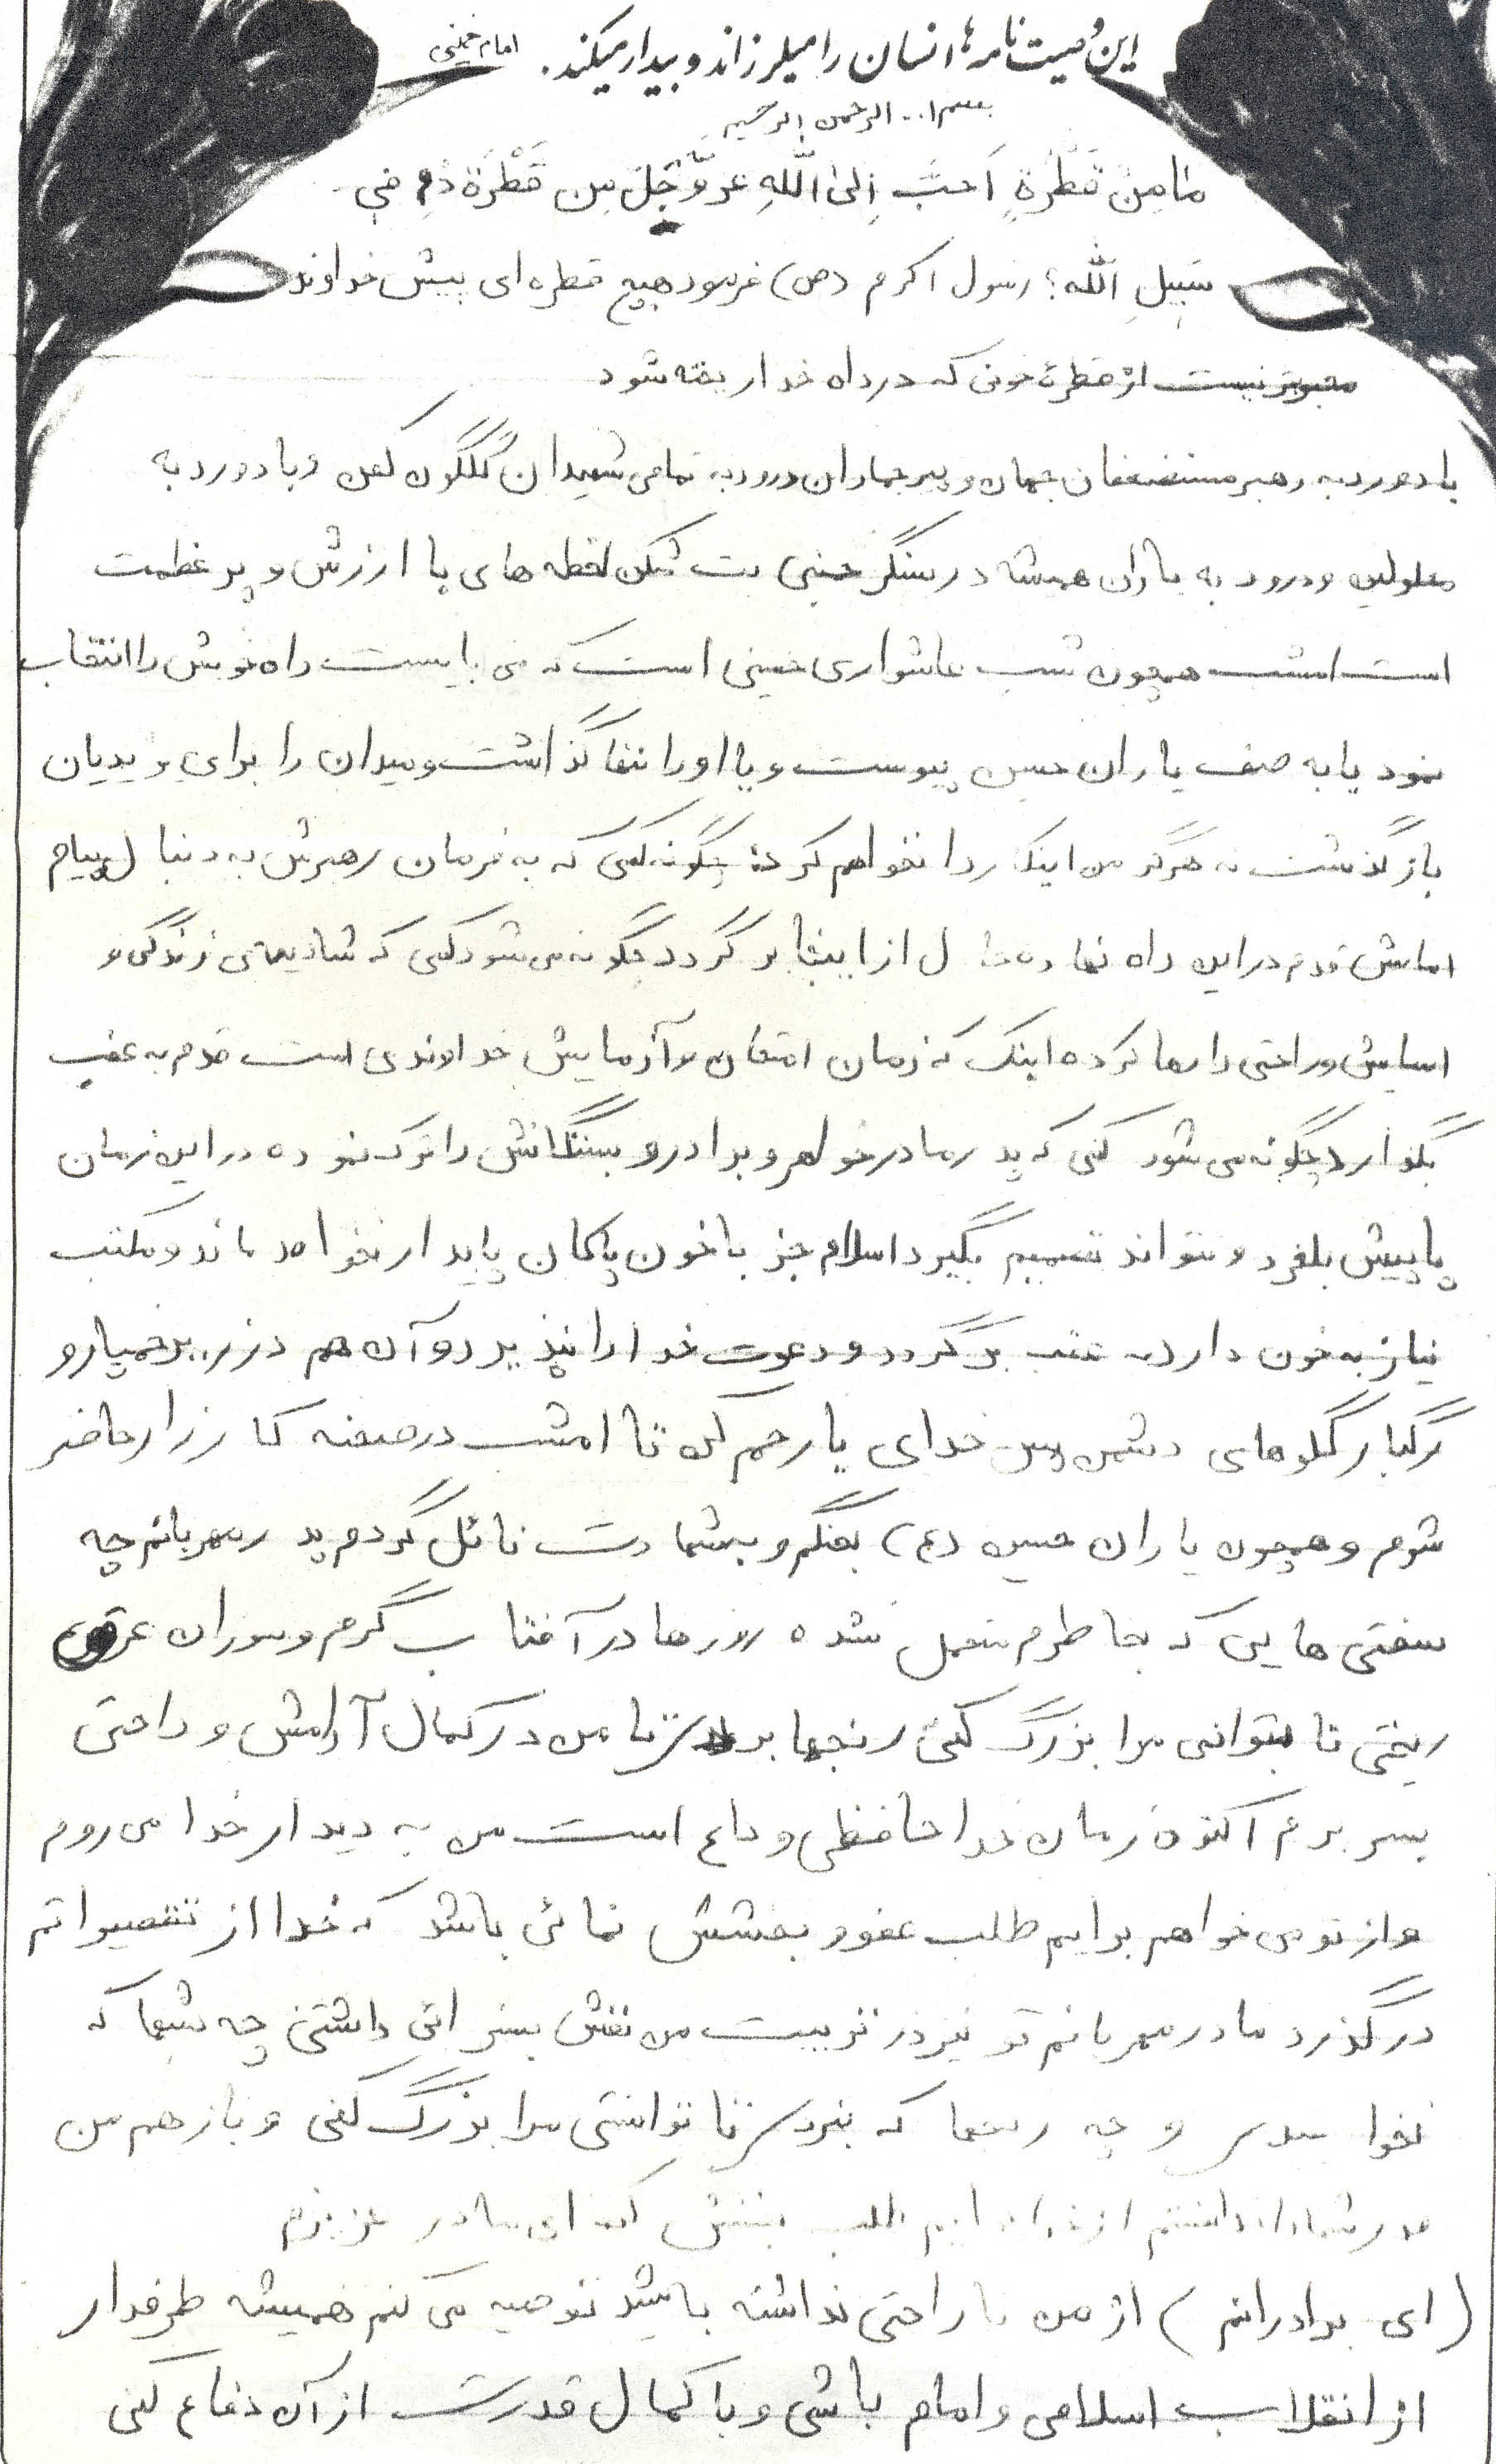 این وصیت‌نامه‌ها انسان را میلرزاند و بیدار میکند. امام خمینی
بسم ا... الرحمن الرحیم
مٰا مِنْ قَطْرَةٍ اَحَبَّ اِلیَ اللّٰهِ عَزَّوَجَلَّ مِن قَطْرَةِ دَمٍ فی
سَبیلِ اللّٰه؛ رسول اکرم (ص) فرمود هیچ قطره ای پیش خداوند
محبوبتر نیست از قطرۀ خونی که در راه خدا ریخته شود
با درود به رهبر مستضعفان جهان و پیر جماران درود به تمامی شهیدان گلگون کفن و با درود به
معلولین و درود به یاران همیشه در سنگر خمینی بت شکن لحظه های با ارزش و پر عظمت
است امشب همچون شب عاشورای حسینی است که می بایست راه خویش را انتخاب
نمود یا به صف یاران حسین پیوست و یا او را تنها گذاشت و میدان را برای یزیدیان
باز گذشت نه هرگز من اینکار را نخواهم کرد چگونه کسی که به فرمان رهبرش به دنبال پیام
امامش قدم در این راه نهاده حال از اینجا بر گردد چگونه می شود کسی که شادیهای زندگی و
اسایش و راحتی را رها کرده اینک که زمان امتحان و آزمایش خداوندی است قدم به عقب
بگذارد چگونه می شود کسی که پدر مادر خواهر و برادر و بستگانش را ترک نموده در این زمان
پا پیش بلغزد و نتواند تصمیم بگیرد اسلام جز با خون پاکان پایدار نخواهد ماند و مکتب
نیاز به خون دارد به عقب برگردد و دعوت خدا را نپذیرد و آن هم در زیر خمپاره و
رگبار گلوهای دشمن خدای یا رحم کن تا امشب در صحنه کارزار حاضر
شوم و همچون یاران حسین (ع) بجنگم و بشهادت نائل گردم پدر مهربانم چه
سختی هایی که بخاطرم متحمل شده روزها در آفتاب گرم و سوزان عرق
ریختی تا بتوانی مرا بزرگ کنی رنجها بردی تا من در کمال آرامش و راحتی
بسر برم اکنون زمان خدا حافظی و داع است من به دیدار خدا می روم
و از تو می خواهم برایم طلب عفو و بخشش نمائی باشد که خدا از تقصیراتم
در گذرد مادر مهربانم تو نیز در تربیت من نقش بسزائی داشتی چه شبها که
نخوابیدی و چه رنجها که نبردی تا توانستی مرا بزرگ کنی و باز هم من
قدر شما را ندانستم از خدا برایم طلب بخشش کن ای مادر عزیزم
(ای برادرانم) از من ناراحتی نداشته باشید توصیه می کنم همیشه طرفدار
از انقلاب اسلامی و امام باشی و با کمال قدرت از آن دفاع کنی